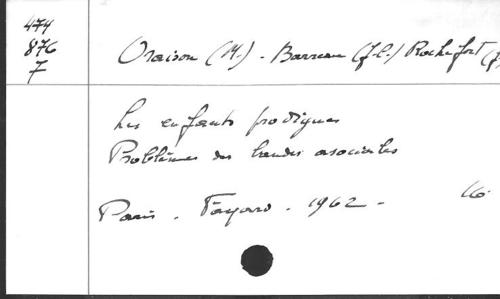 474
876
7
Oraison (M.). Barreau (J.C.) Rochefort (J
Les enfants prodigues
Problèmes des bandes asociales
Paris. Fayard. 1962. 16°